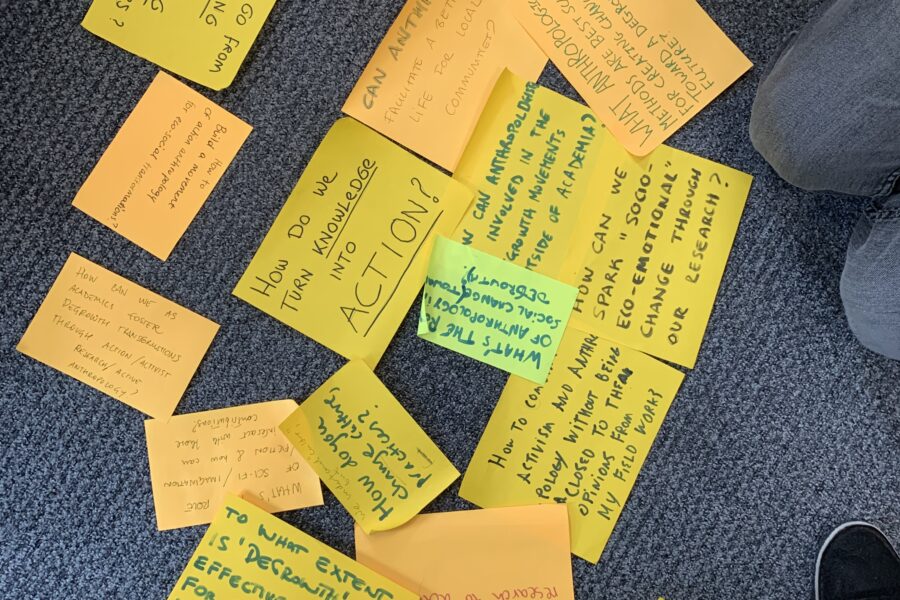 GO FROM
NG
HOW TO
Build a movement
of action anthropology
for eco-social
transformations?
CAN
FACILITATE A
LIFE FOR LOCAL
COMMUNITIES?
WHAT
METHODS ARE BEST
FOR CREATING
TOWARD A
FUTURE?
HOW DO WE
TURN KNOWLEDGE
INTO
ACTION?
CAN ANTHROPOLOGISTS
INVOLVED IN THE
GROWTH MOVEMENTS
OF ACADEMIA?
HOW CAN WE
SPARK "SOCIO-
ECO-EMOTIONAL"
CHANGE THROUGH
OUR RESEARCH?
WHAT'S THE
OF ANTHROPOLOGY
SOCIAL CHANGE
HOW CAN WE AS
ACADEMICS FOSTER
DEGROWTH TRANSFORMATIONS
THROUGH ACTION/ACTIVIST
RESEARCH/ACTIVE
ANTHROPOLOGY?
WHAT'S ROLE
OF SCI-FI/IMAGINATION
/FICTION & how can
interact with those
contributions?
How do you
change culture,
practices?
HOW TO
ACTIVISM AND
POLOGY WITHOUT BEING
CLOSED TO
OPINIONS FROM
MY FIELD WORK?
TO WHAT EXTENT
IS 'DEGROWTH'
EFFECTIVE
FOR
research to